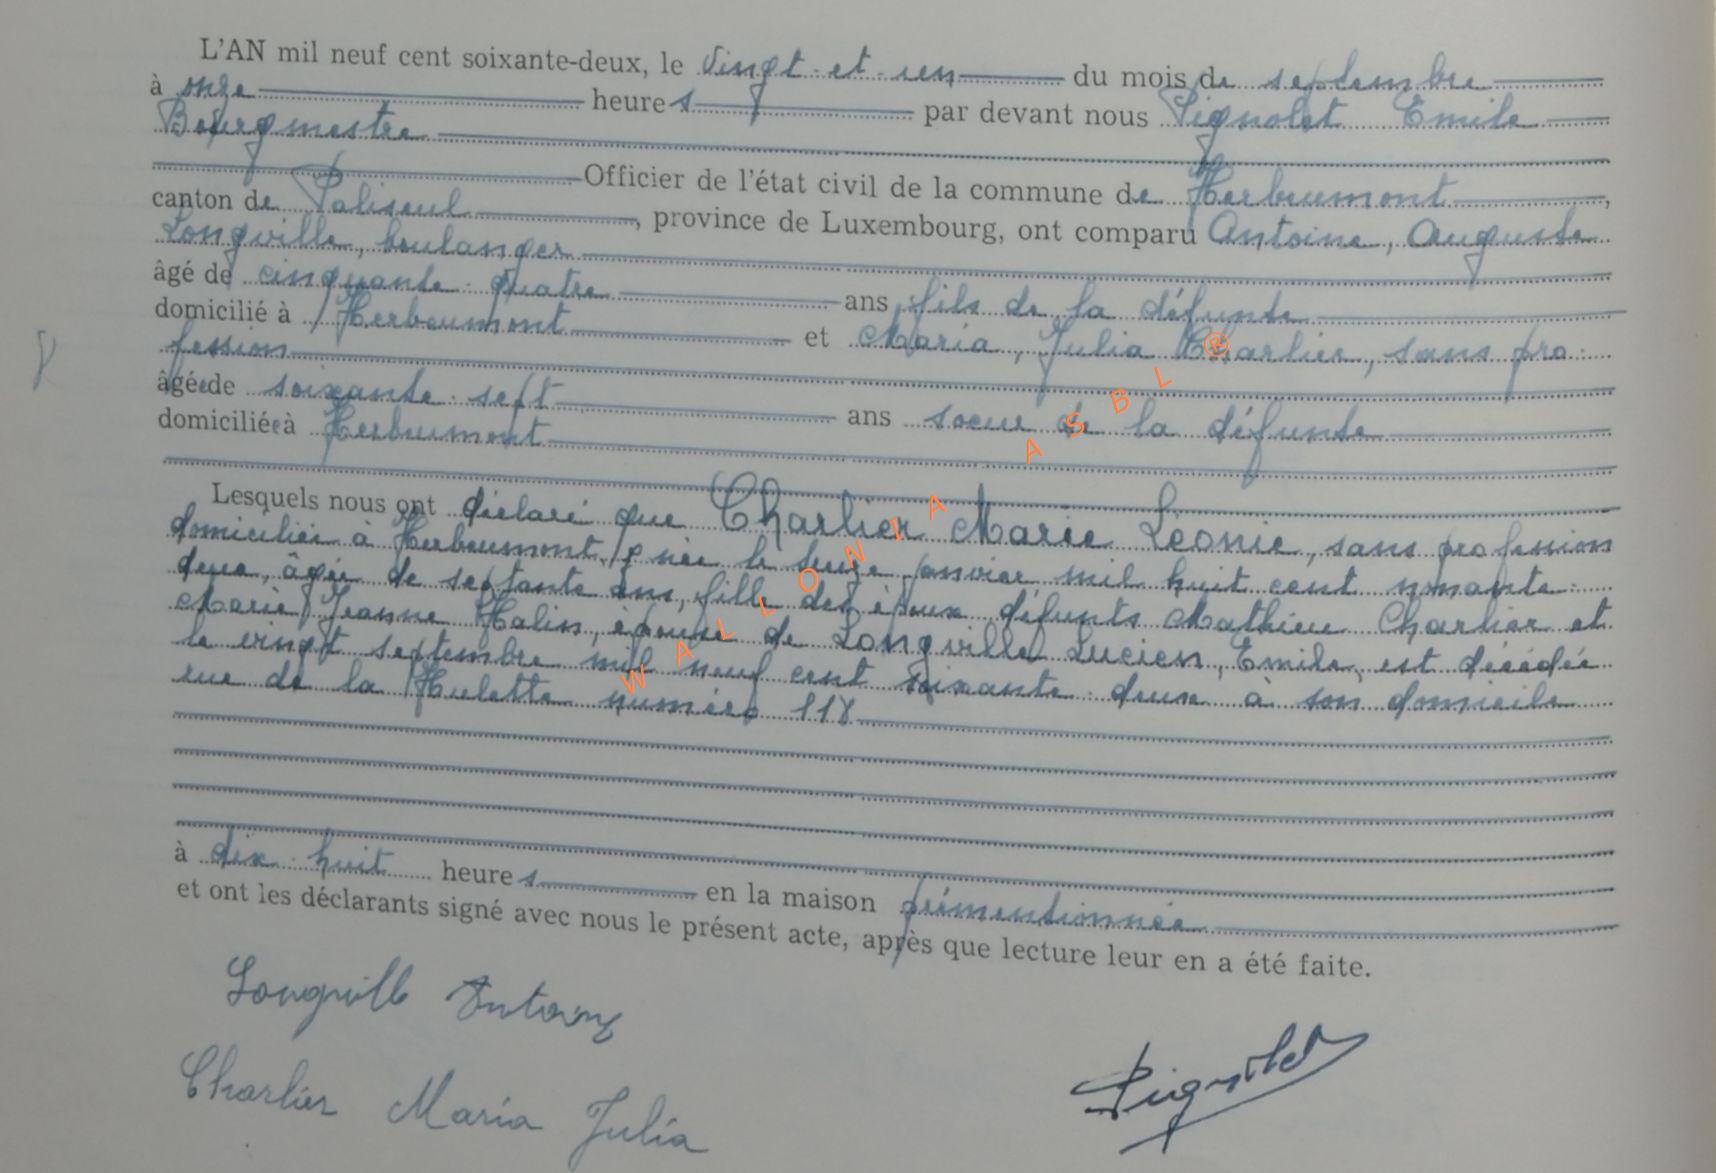 L'AN mil neuf cent soixante-deux, le vingt et un du mois de septembre
à onze heures par devant nous Pignolet Emile
Bourgmestre
Officier de l'état civil de la commune de Herbeumont,
canton de Paliseul, province de Luxembourg, ont comparu Antoine, Auguste
Longville, boulanger
âgé de cinquante quatre ans fils de la défunte
domicilié à Herbeumont et Maria, Julia Charlier, sans pro-
fession
âgée de soixante sept ans soeur de la défunte
domiciliée à Herbeumont
Lesquels nous ont déclaré que Charlier Marie Léonie, sans profession
domiciliée à Herbeumont, y née le janvier mil huit cent nonante
deux, âgée de septante ans, fille des époux défunts Mathieu Charlier et
Marie Jeanne Halin, épouse de Longville Lucien, Emile, est décédée
le vingt septembre mil neuf cent soixante deux à son domicile
rue de la Hulette numéro 118
à dix huit heures en la maison prémentionnée
et ont les déclarants signé avec nous le présent acte, après que lecture leur en a été faite.
Longville Antoine
Charlier Maria Julia
Pignolet
WALLONIA ASBL ®